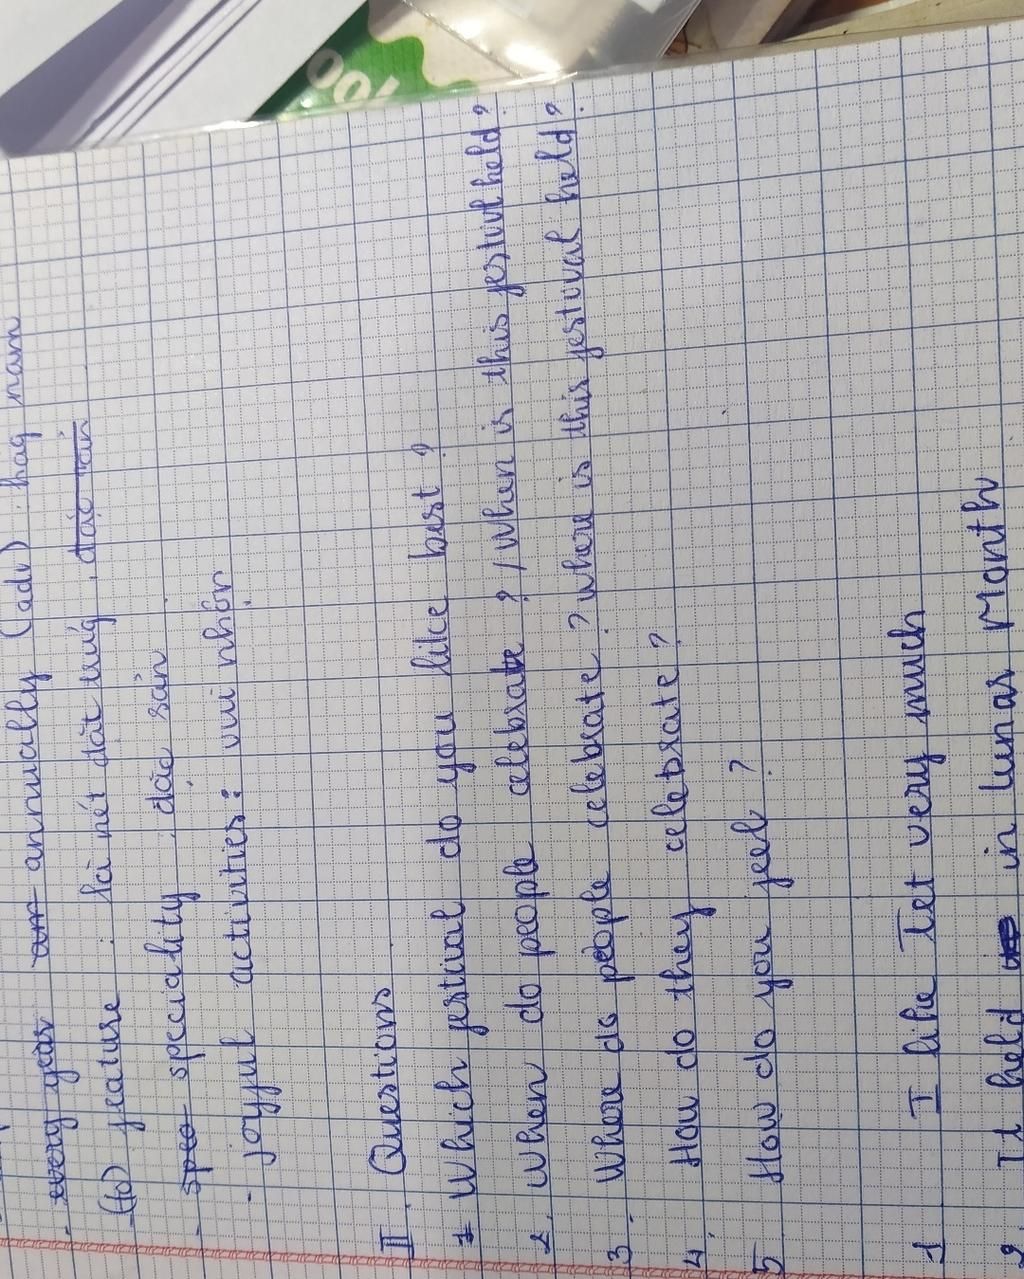 - every year an annually (adv) : hag nam
- (to) feature : là nét đặt trưg , đặc sản
- spec speciality : đặc sản
- joyful activities : vui nhộn
II . Questions
1 Which festival do you like best ?
2. When do people celebrate ? / When is this festivl held ?
3. Where do people celebrate ? where is this festival held ?
4. How do they celebrate ?
5 How do you feel ?
1 I like Tet very much
2. It held in lunar Month